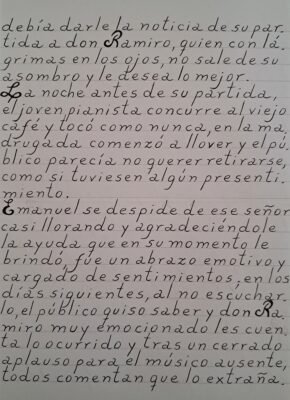 debía darle la noticia de su par-
tida a don Ramiro, quien con lá-
grimas en los ojos, no sale de su
asombro y le desea lo mejor.
La noche antes de su partida,
el joven pianista concurre al viejo
café y tocó como nunca, en la ma
drugada comenzó a llover y el pú-
blico parecía no querer retirarse,
como si tuviesen algún presenti-
miento.
Emanuel se despide de ese señor
casi llorando y agradeciéndole
la ayuda que en su momento le
brindó, fue un abrazo emotivo y
cargado de sentimientos, en los
días siguientes, al no escuchar-
lo, el público quiso saber y don Ra
miro muy emocionado les cuen
ta lo ocurrido y tras un cerrado
aplauso para el músico ausente,
todos comentan que lo extraña.